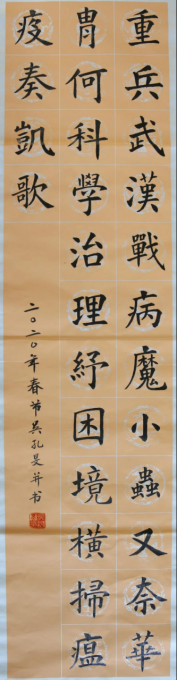 重兵武漢戰病魔小蟲又奈華
胄何科學治理紓困境橫掃瘟
疫奏凱歌
二〇二〇年春节吴孔旻并书